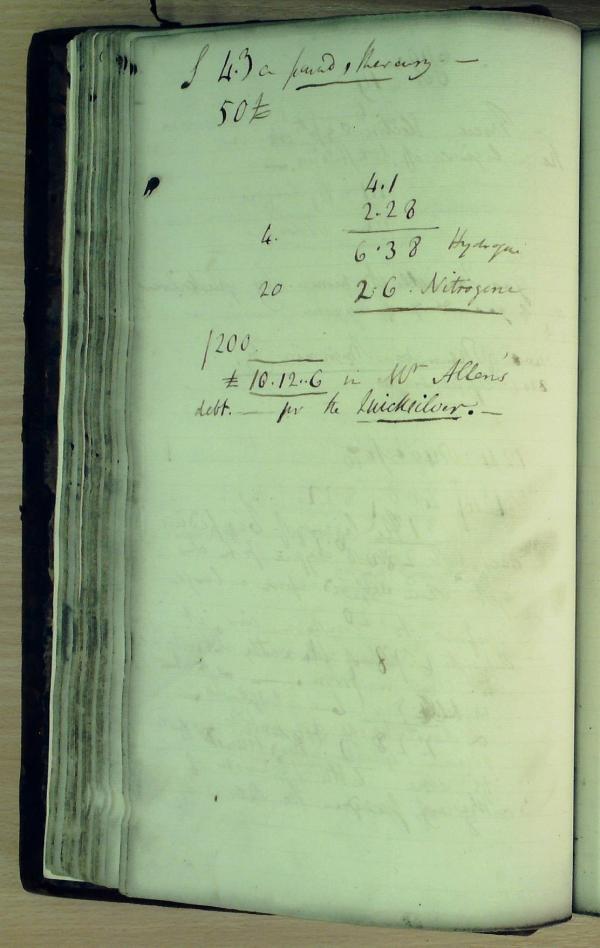 S 4.3 a pound, Mercury —
50 £
4.1
2.28
4. 6.38 Hydrogene
20 2.6. Nitrogene
1200
£ 10.12..6 in Mr Allen's
debt. — for the Quicksilver. —